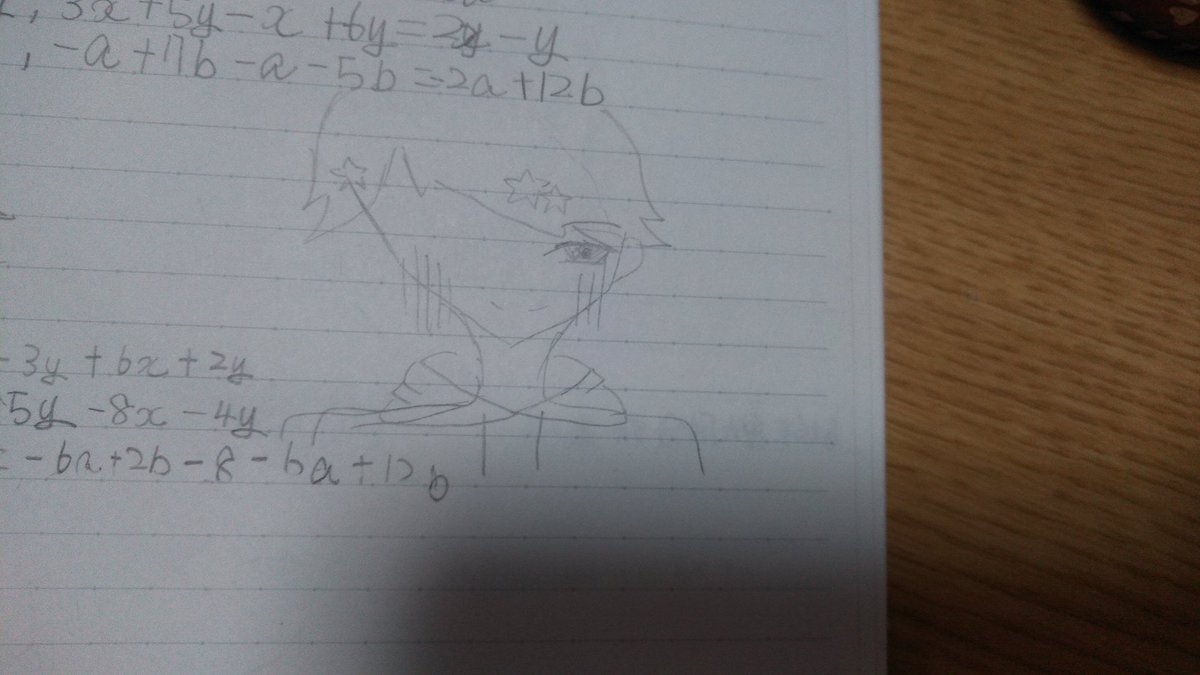 , 3x+5y-x+6y=2y-y
, -a+17b-a-5b=-2a+12b
-3y+6x+2y
5y-8x-4y
=-6a+2b-8-6a+12b